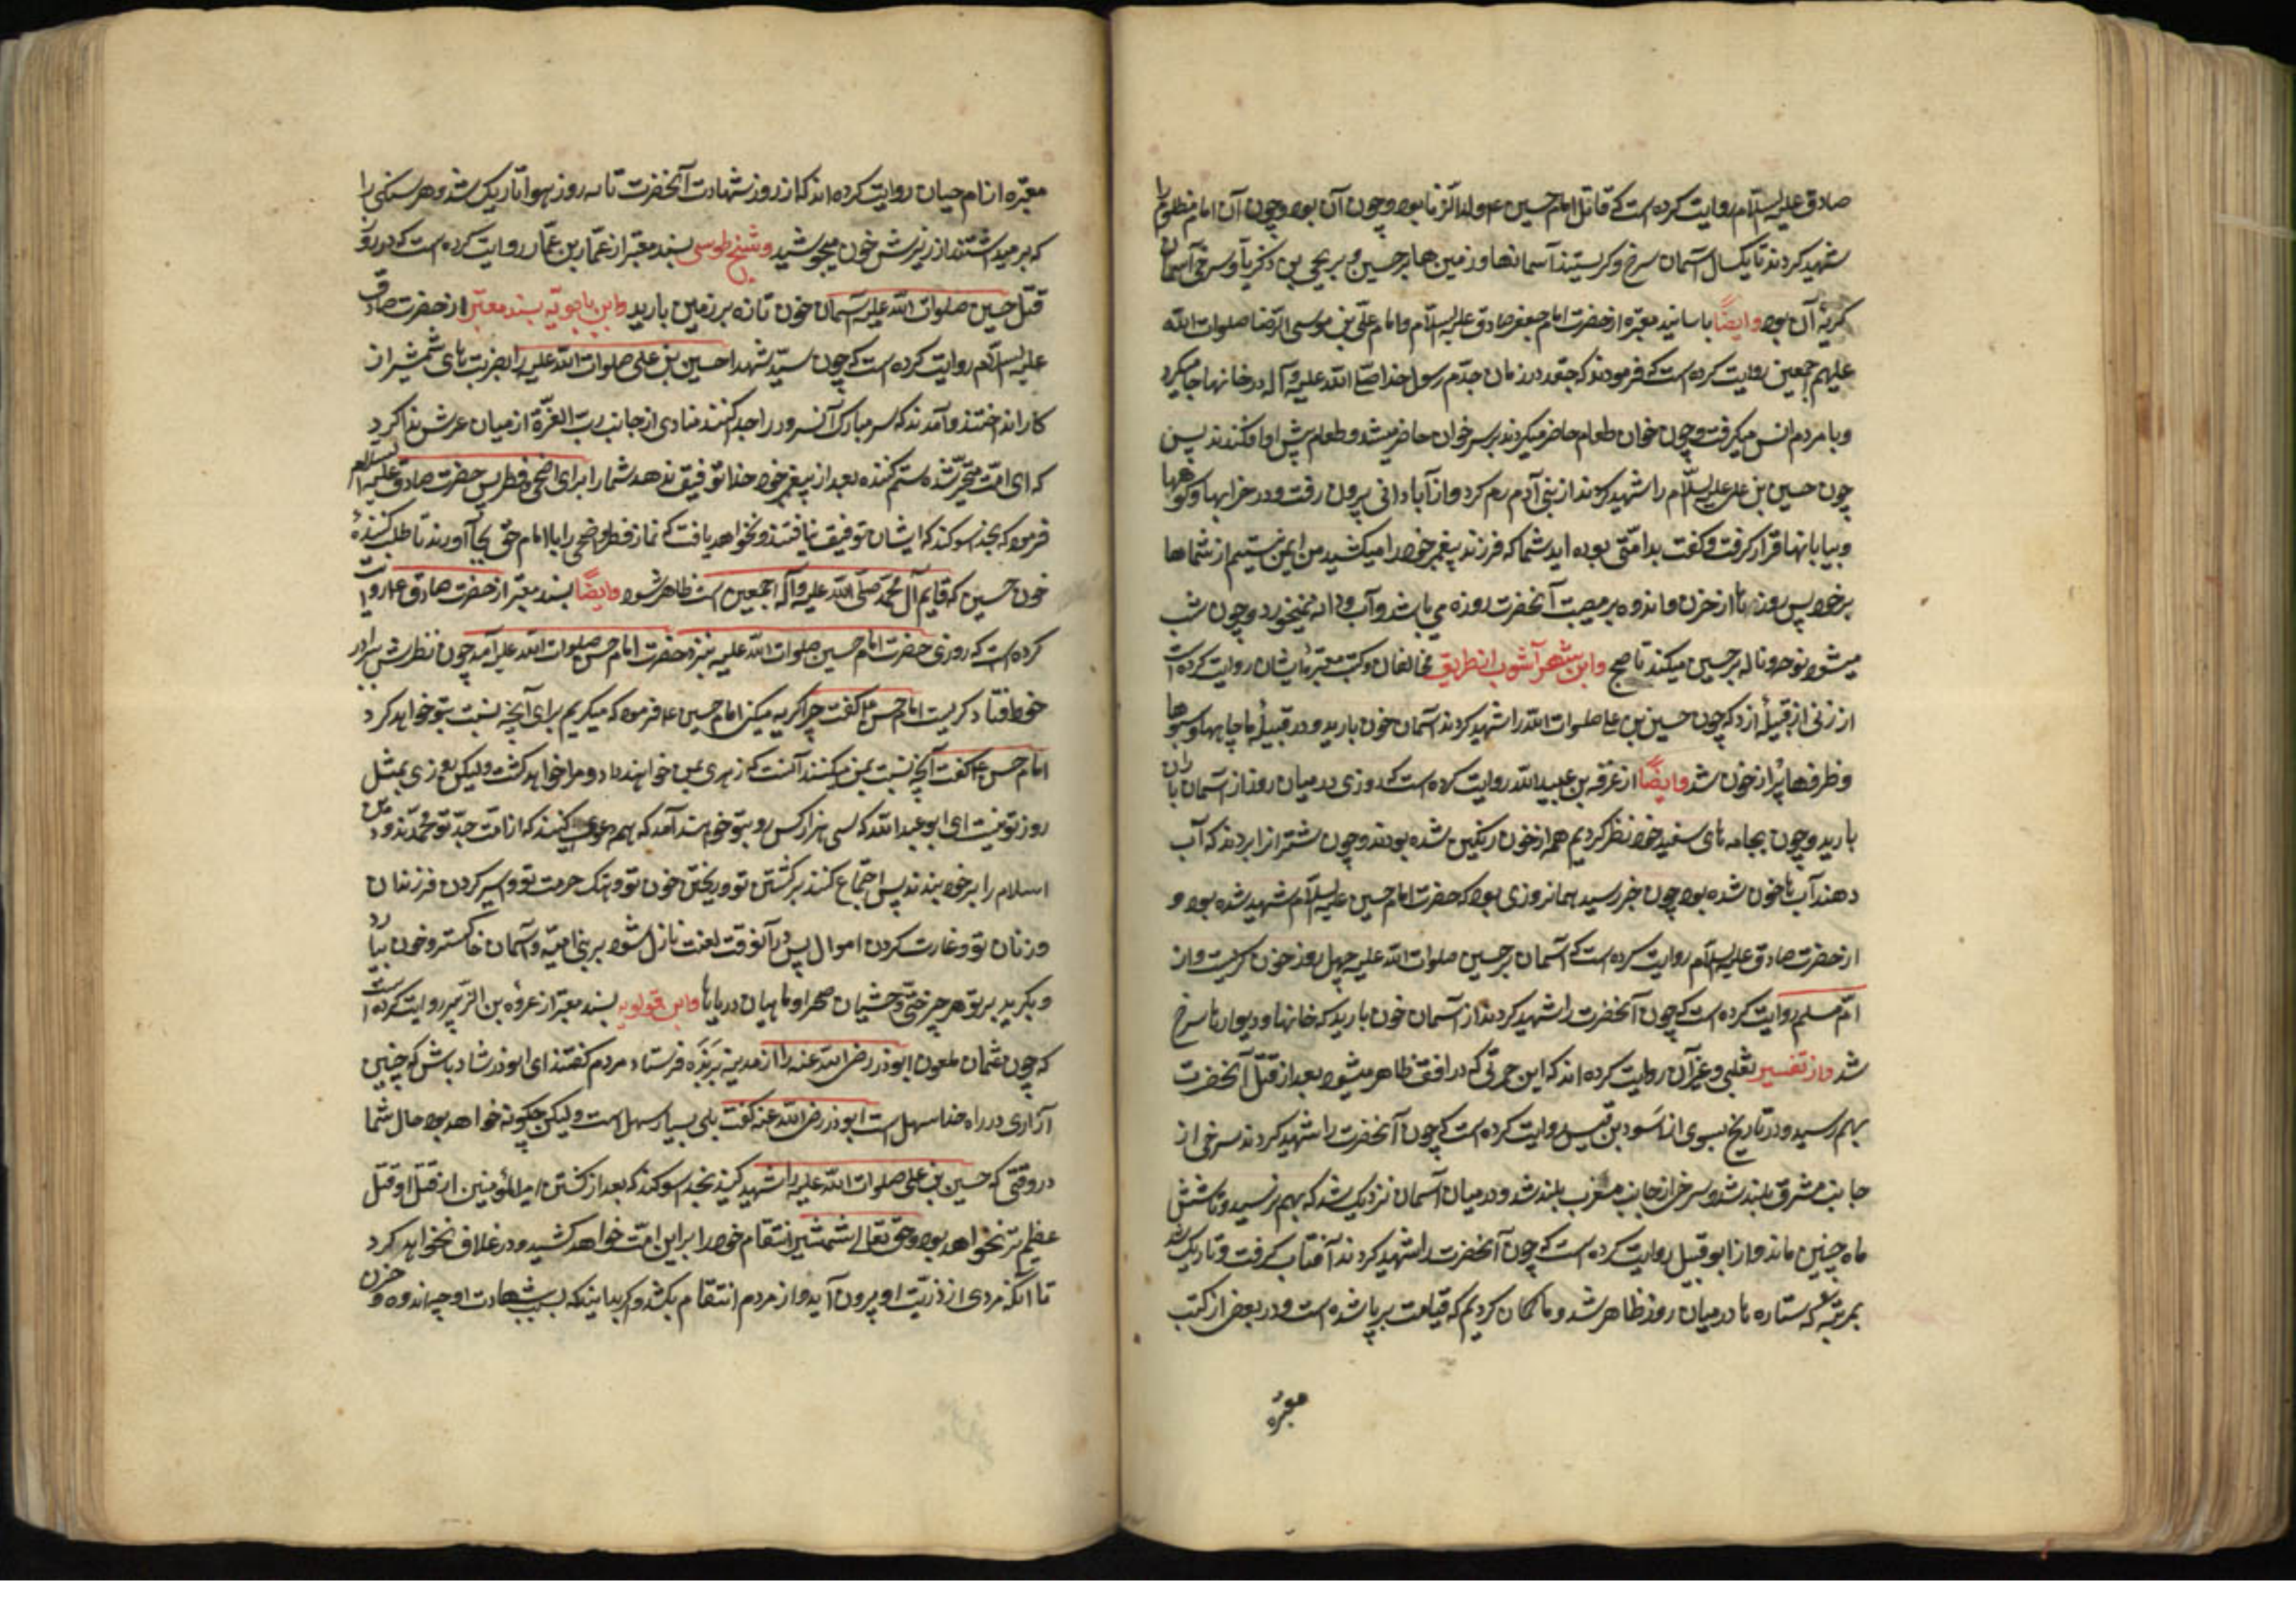 صادق علیه السلام روایت کرده است که قاتل امام حسین ع ولد الزنا بود و چون آن بود و چون آن امام مظلوم را
شهید کردند تا یکسال آسمان سرخ و کریستند آسمانها و زمین ها بر حسین و بر یحیی بن ذکریا و سرخی آسمان
کریه آن بود وایضًا باسانید معتبره از حضرت امام جعفر صادق علیه السلام و امام علی بن موسی الرضا صلوات الله
علیهم اجمعین روایت کرده است که فرمودند که جغد در زمان جدم رسول خدا صلی الله علیه و آله در خانها جا میکرد
و با مردم انس میکرفت و چون خوان طعام حاضر میکردند بر سر خوان حاضر میشد و طعام پیش او افکندند پس
چون حسین بن علی علیه السلام را شهید کردند از بنی آدم رم کرد و از آبادانی بیرون رفت و در خرابها و کوهها
و بیابانها قرار کرفت و کفت بد امتی بوده اید شما که فرزند پیغمبر خود را میکشید من ایمن نیستم از شماها
بر خود پس روزها از حزن و اندوه بر مصیبت آنحضرت روزه می باشد و آب و دانه نمیخورد و چون شب
میشود نوحه و ناله بر حسین میکند تا صبح وابن شهر آشوب از طریق مخالفان و کتب معتبرهٔ ایشان روایت کرده است
از زنی از قبیلهٔ ازد که چون حسین بن علی صلوات الله را شهید کردند آسمان خون بارید و در قبیلهٔ ما چاهها و سبوها
و ظرفها پُر از خون شد وایضًا از غرفه بن عبید الله روایت کرده است که روزی در میان روز از آسمان باران
بارید و چون بجامه های سفید خود نظر کردیم همه از خون رنکین شده بودند و چون شتران را بردند که آب
دهند آب ها خون شده بود چون خبر رسید همانروزی بود که حضرت امام حسین علیه السلام شهید شده بود و
از حضرت صادق علیه السلام روایت کرده است که آسمان بر حسین صلوات الله علیه چهل روز خون کریست و از
ام سلم روایت کرده است که چون آنحضرت را شهید کردند از آسمان خون بارید که خانها و دیوارها سرخ
شد و از تفسیر ثعلبی و غیر آن روایت کرده اند که این حمرتی که در افق ظاهر میشود بعد از قتل آنحضرت
بهم رسید و در تاریخ نسوی از اسود بن قیس روایت کرده است که چون آنحضرت را شهید کردند سرخی از
جانب مشرق بلند شد و سرخی از جانب مغرب بلند شد و در میان آسمان نزدیک شد که بهم رسید و تا شش
ماه چنین ماند و از ابو قبیل روایت کرده است که چون آنحضرت را شهید کردند آفتاب کرفت و تاریک شد
بمرتبهٔ که ستاره ها در میان روز ظاهر شد و ما کمان کردیم که قیامت بر پا شده است و در بعض از کتب
معتبره
معتبره از ام حیان روایت کرده اند که از روز شهادت آنحضرت تا سه روز هوا تاریک شد و هر سنکی را
که بر میداشتند از زیرش خون میجوشید و شیخ طوسی بسند معتبر از عمار بن عمار روایت کرده است که در روز
قتل حسین صلوات الله علیه آسمان خون تازه بر زمین بارید وابن بابویه بسند معتبر از حضرت صادق
علیه السلام روایت کرده است که چون سید شهدا حسین بن علی صلوات الله علیه را بضربت های شمشیر از
کار انداختند و آمدند که سر مبارک آنسرور را جدا کنند منادی از جانب رب العزة از میان عرش ندا کرد
که ای امت متحیر شده ستم کننده بعد از پیغمبر خود خدا توفیق ندهد شما را برای اضحی و فطر پس حضرت صادق علیه السلام
فرمود که بخدا سوکند که ایشان توفیق نیافتند و نخواهد یافت که نماز فطر و اضحی را با امام حق بجا آورند تا طلب کنندهٔ
خون حسین که قایم آل محمد صلی الله علیه و آله اجمعین است ظاهر شود وایضًا بسند معتبر از حضرت صادق ع روایت
کرده است که روزی حضرت امام حسین صلوات الله علیه بنزد حضرت امام حسن صلوات الله علیه آمد چون نظرش برادر
خود افتاد کریست امام حسن ع کفت چرا کریه میکنی امام حسین ع فرمود که میکریم برای آنچه نسبت بتو خواهد کرد
امام حسن ع کفت آنچه نسبت بمن میکنند آنست که زهری بمن خواهند داد و مرا خواهد کشت ولیکن روزی بمثل
روز تو نیست ای ابو عبد الله که سی هزار کس رو بتو خواهند آمد که همه دعوی کنند که از امت جد تو محمدند و دین
اسلام را بر خود بندند پس اجتماع کنند بر کشتن تو و ریختن خون تو و هتک حرمت تو و اسیر کردن فرزندان
و زنان تو و غارت کردن اموال پس در آنوقت لعنت نازل شود بر بنی امیه و آسمان خاکستر و خون ببارد
و بکرید بر تو هر چیز حتی وحشیان صحرا و ماهیان دریاها وابن قولویه بسند معتبر از عروه بن الزبیر روایت کرده است
که چون عثمان ملعون ابوذر رضی الله عنه را از مدینه بربذه فرستاد مردم کفتند ای ابوذر شاد باش که چنین
آزاری در راه خدا سهل است ابوذر رضی الله عنه کفت بلی بسیار سهل است ولیکن چکونه خواهد بود حال شما
در وقتی که حسین بن علی صلوات الله علیه را شهید کنید بخدا سوکند که بعد از کشتن امیر المؤمنین از قتل او قتل
عظیم تر نخواهد بود و حق تعالی شمشیر انتقام خود را بر این امت خواهد کشید و در غلاف نخواهد کرد
تا آنکه مردی از ذریت او بیرون آید و از مردم انتقام بکشد و اکر بدانید که بسبب شهادت او چه اندوه و حزن